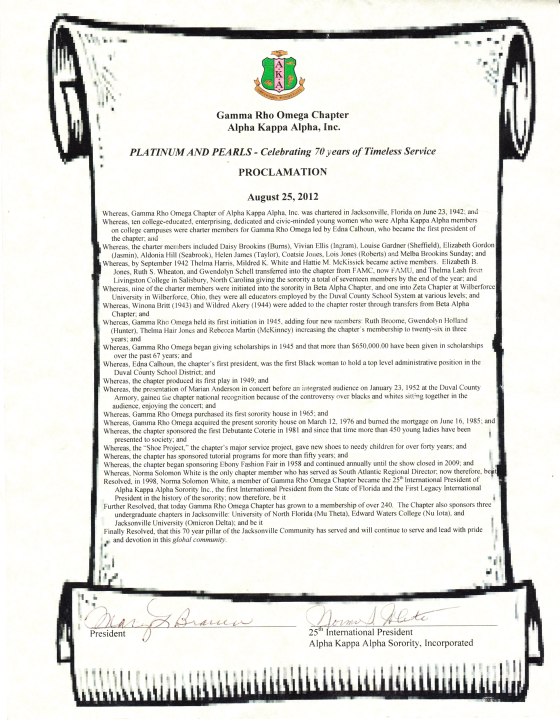 AKA
Gamma Rho Omega Chapter
Alpha Kappa Alpha, Inc.
PLATINUM AND PEARLS - Celebrating 70 years of Timeless Service
PROCLAMATION
August 25, 2012
Whereas, Gamma Rho Omega Chapter of Alpha Kappa Alpha, Inc. was chartered in Jacksonville, Florida on June 23, 1942; and
Whereas, ten college-educated, enterprising, dedicated and civic-minded young women who were Alpha Kappa Alpha members
on college campuses were charter members for Gamma Rho Omega led by Edna Calhoun, who became the first president of
the chapter; and
Whereas, the charter members included Daisy Brookins (Burns), Vivian Ellis (Ingram), Louise Gardner (Sheffield), Elizabeth Gordon
(Jasmin), Aldonia Hill (Seabrook), Helen James (Taylor), Coatsie Jones, Lois Jones (Roberts) and Melba Brookins Sunday; and
Whereas, by September 1942 Thelma Harris, Mildred K. White and Hattie M. McKissick became active members. Elizabeth B.
Jones, Ruth S. Wheaton, and Gwendolyn Schell transferred into the chapter from FAMC, now FAMU, and Thelma Lash from
Livingston College in Salisbury, North Carolina giving the sorority a total of seventeen members by the end of the year; and
Whereas, nine of the charter members were initiated into the sorority in Beta Alpha Chapter, and one into Zeta Chapter at Wilberforce
University in Wilberforce, Ohio, they were all educators employed by the Duval County School System at various levels; and
Whereas, Winona Britt (1943) and Wildred Akery (1944) were added to the chapter roster through transfers from Beta Alpha
Chapter; and
Whereas, Gamma Rho Omega held its first initiation in 1945, adding four new members: Ruth Broome, Gwendolyn Holland
(Hunter), Thelma Hair Jones and Rebecca Martin (McKinney) increasing the chapter's membership to twenty-six in three
years; and
Whereas, Gamma Rho Omega began giving scholarships in 1945 and that more than $650,000.00 have been given in scholarships
over the past 67 years; and
Whereas, Edna Calhoun, the chapter's first president, was the first Black woman to hold a top level administrative position in the
Duval County School District; and
Whereas, the chapter produced its first play in 1949; and
Whereas, the presentation of Marian Anderson in concert before an integrated audience on January 23, 1952 at the Duval County
Armory, gained the chapter national recognition because of the controversy over blacks and whites sitting together in the
audience, enjoying the concert; and
Whereas, Gamma Rho Omega purchased its first sorority house in 1965; and
Whereas, Gamma Rho Omega acquired the present sorority house on March 12, 1976 and burned the mortgage on June 16, 1985; and
Whereas, the chapter sponsored the first Debutante Coterie in 1981 and since that time more than 450 young ladies have been
presented to society; and
Whereas, the "Shoe Project," the chapter's major service project, gave new shoes to needy children for over forty years; and
Whereas, the chapter has sponsored tutorial programs for more than fifty years; and
Whereas, the chapter began sponsoring Ebony Fashion Fair in 1958 and continued annually until the show closed in 2009; and
Whereas, Norma Solomon White is the only chapter member who has served as South Atlantic Regional Director; now therefore, be it
Resolved, in 1998, Norma Solomon White, a member of Gamma Rho Omega Chapter became the 25th International President of
Alpha Kappa Alpha Sorority Inc., the first International President from the State of Florida and the First Legacy International
President in the history of the sorority; now therefore, be it
Further Resolved, that today Gamma Omega Chapter has grown to a membership of over 240. The Chapter also sponsors three
undergraduate chapters in Jacksonville: University of North Florida (Mu Theta), Edward Waters College (Nu Iota), and
Jacksonville University (Omicron Delta); and be it
Finally Resolved, that this 70 year pillar of the Jacksonville Community has served and will continue to serve and lead with pride
and devotion in this global community.
Norma S. White
President
25th International President
Alpha Kappa Alpha Sorority, Incorporated